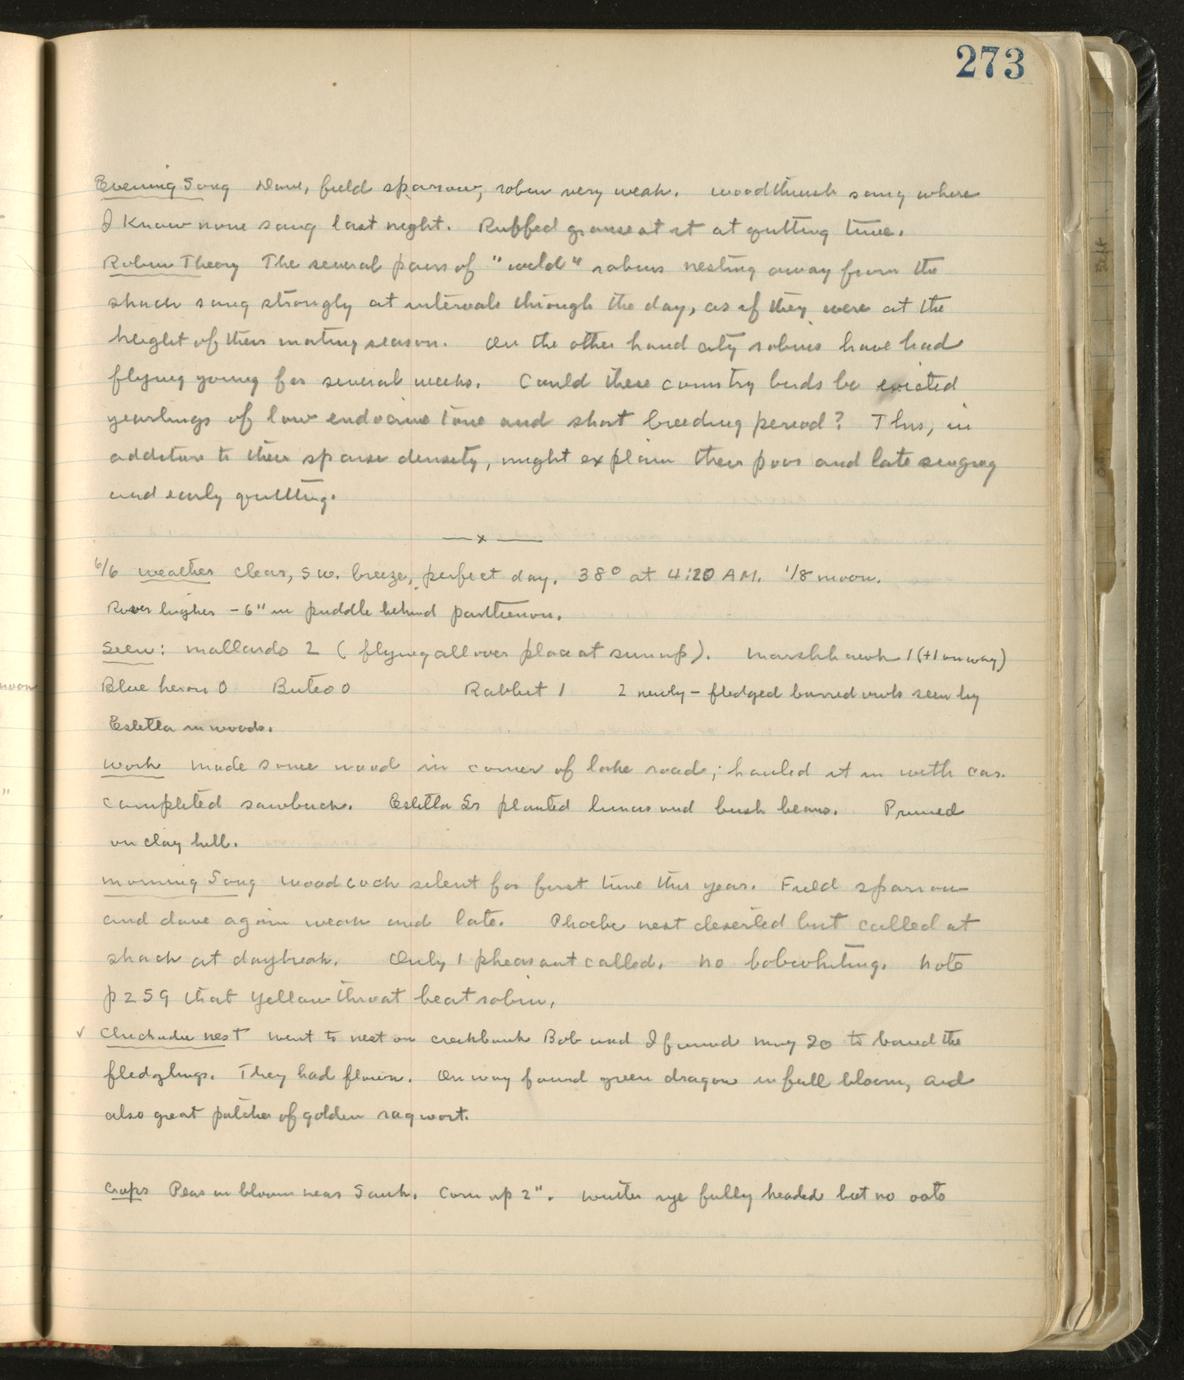 273
Evening Song Dove, field sparrow, robin very weak. Woodthrush sang where
I know none sang last night. Ruffed grouse at it at quitting time.
Robin Theory The several pairs of "wild" robins nesting away from the
shack sang strongly at intervals through the day, as if they were at the
height of their mating season. On the other hand city robins have had
flying young for several weeks. Could these country birds be evicted
yearlings of low endocrine tone and short breeding period? This, in
addition to their sparse density, might explain their poor and late singing
and early quitting.
—x—
6/6 Weather clear, SW. breeze, perfect day. 38° at 4:20 AM. 1/8 moon.
River higher - 6" in puddle behind parthenon.
Seen: mallards 2 (flying all over place at sunup). Marshhawk 1 (+1 on way)
Blue heron 0 Buteo 0 Rabbit 1 2 newly-fledged barred owls seen by
Estella in woods.
Work made some wood in corner of lake road; hauled it in with car.
Completed sawbuck. Estella Sr planted limas and bush beans. Pruned
on clay hill.
Morning Song Woodcock silent for first time this year. Field sparrow
and dove again weak and late. Phoebe nest deserted but called at
shack at daybreak. Only 1 pheasant called. No bobwhiting. Note
p 259 that yellowthroat beat robin.
✓ Chickadee nest went to nest on creekbank Bob and I found May 20 to band the
fledglings. They had flown. On way found green dragon in full bloom, and
also great patches of golden ragwort.
Crops Peas in bloom near Sauk. Corn up 2". Winter rye fully headed but no oats
moon
"